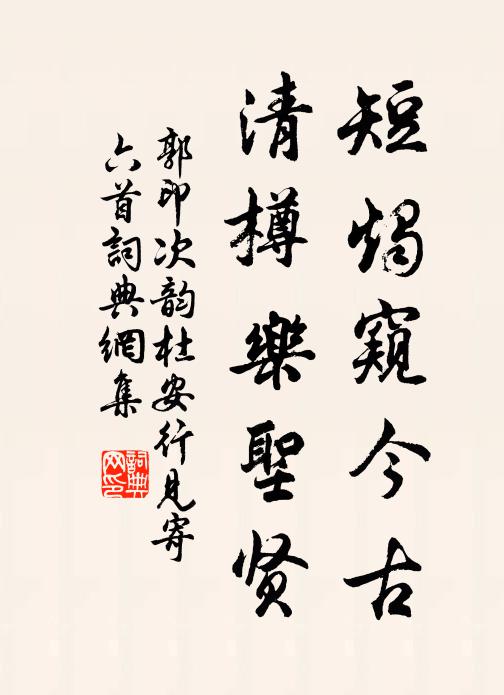 短烛窥今古
清樽樂聖贤
郭印次韵杜安行見寄
六首詞典網集
詞典
网印